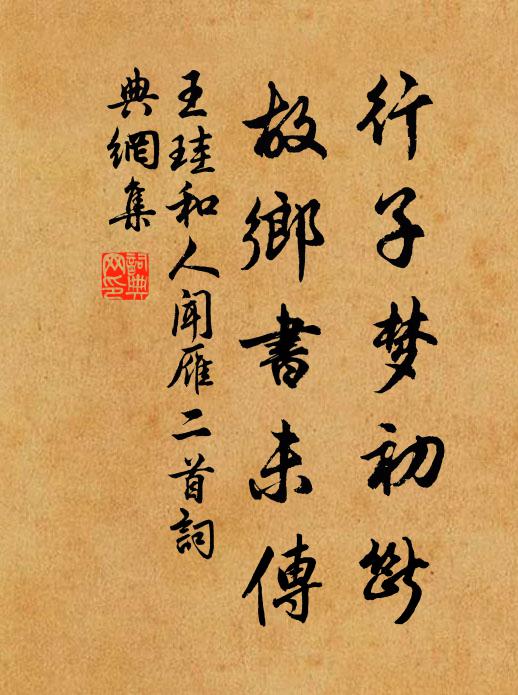 行子梦初断
故鄉書未傳
王珪和人闻雁二首詞
典網集
詞典
网印